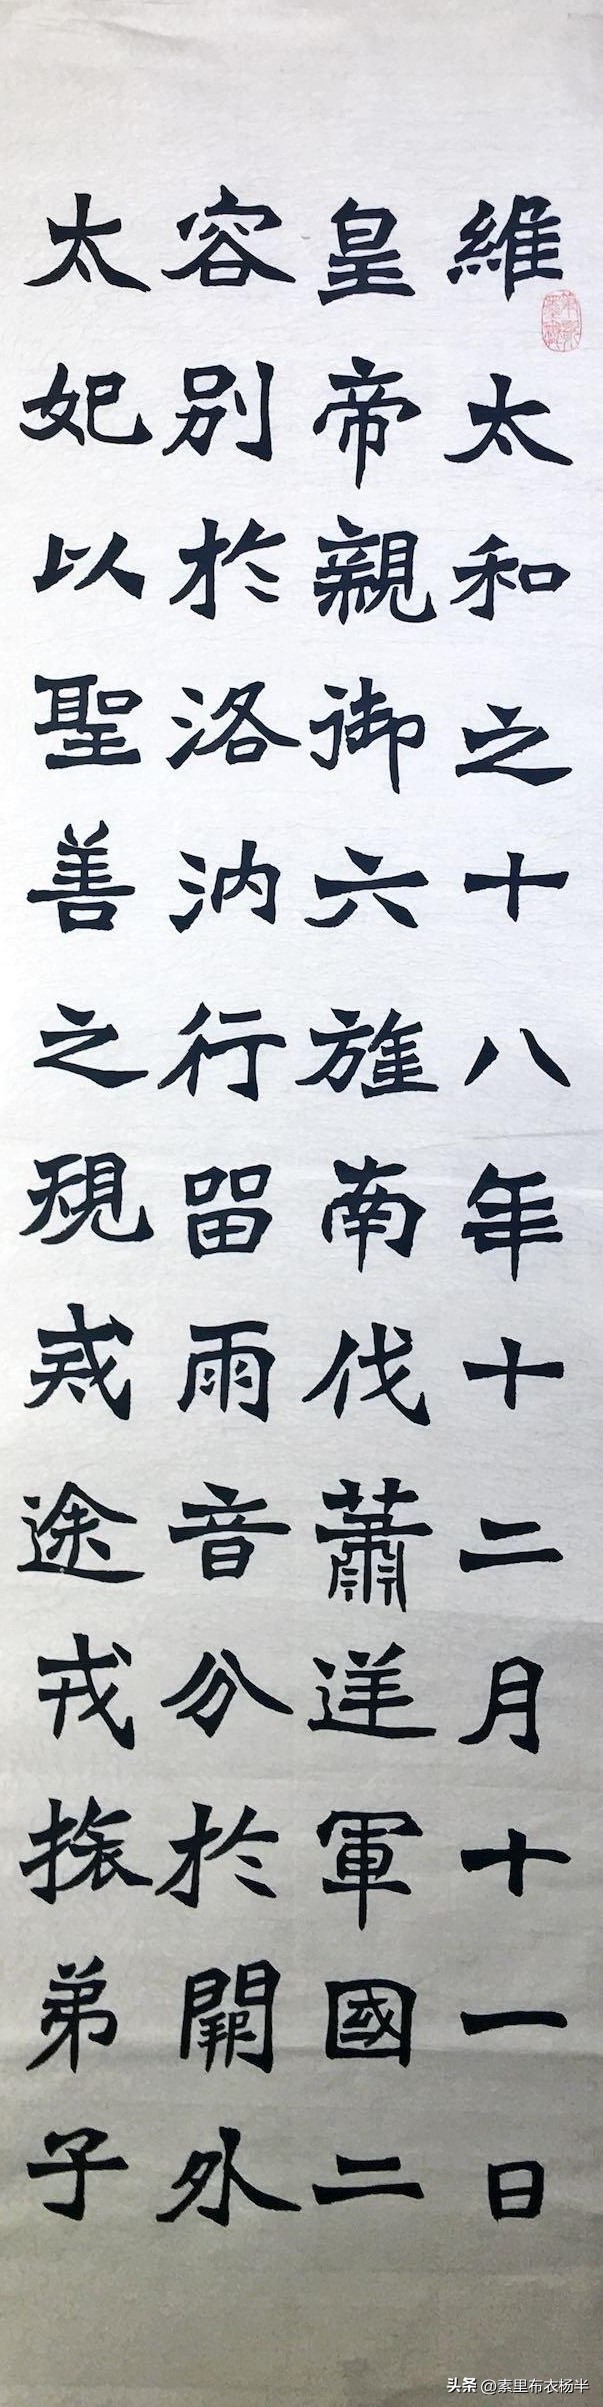 維太和之十八年十二月十一日
皇帝親御六旌南伐蕭逆軍國二
容別於洛汭行留雨音分於闗外
太妃以聖善之規戒途戎旅弟子
头条 @素里布衣杨半